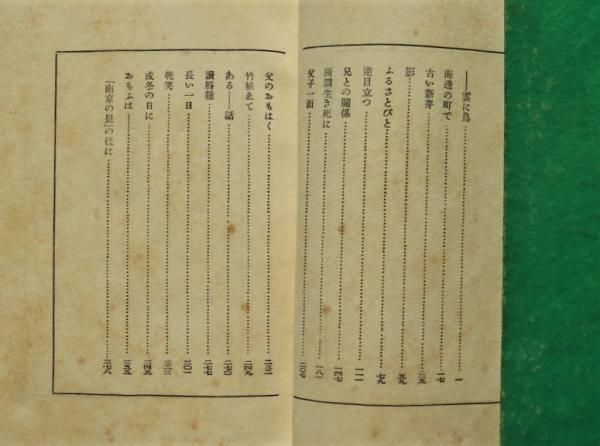 ――雲に鳥……一
海邊の町で……一七
古い新芽……三五
影……五九
ふるさとびと……七九
逆目立つ……一一一
兄との關係……一四七
所謂生き死に……一八一
父子一面……二〇七
父のおもはく……二三一
竹植ゑて……二四九
ある――話……二七〇
讀唇難……二七七
長い一日……三〇一
乾笑……三二三
或冬の日に……三四五
おもふは――……三五五
「南京の皿」の後に……三六八